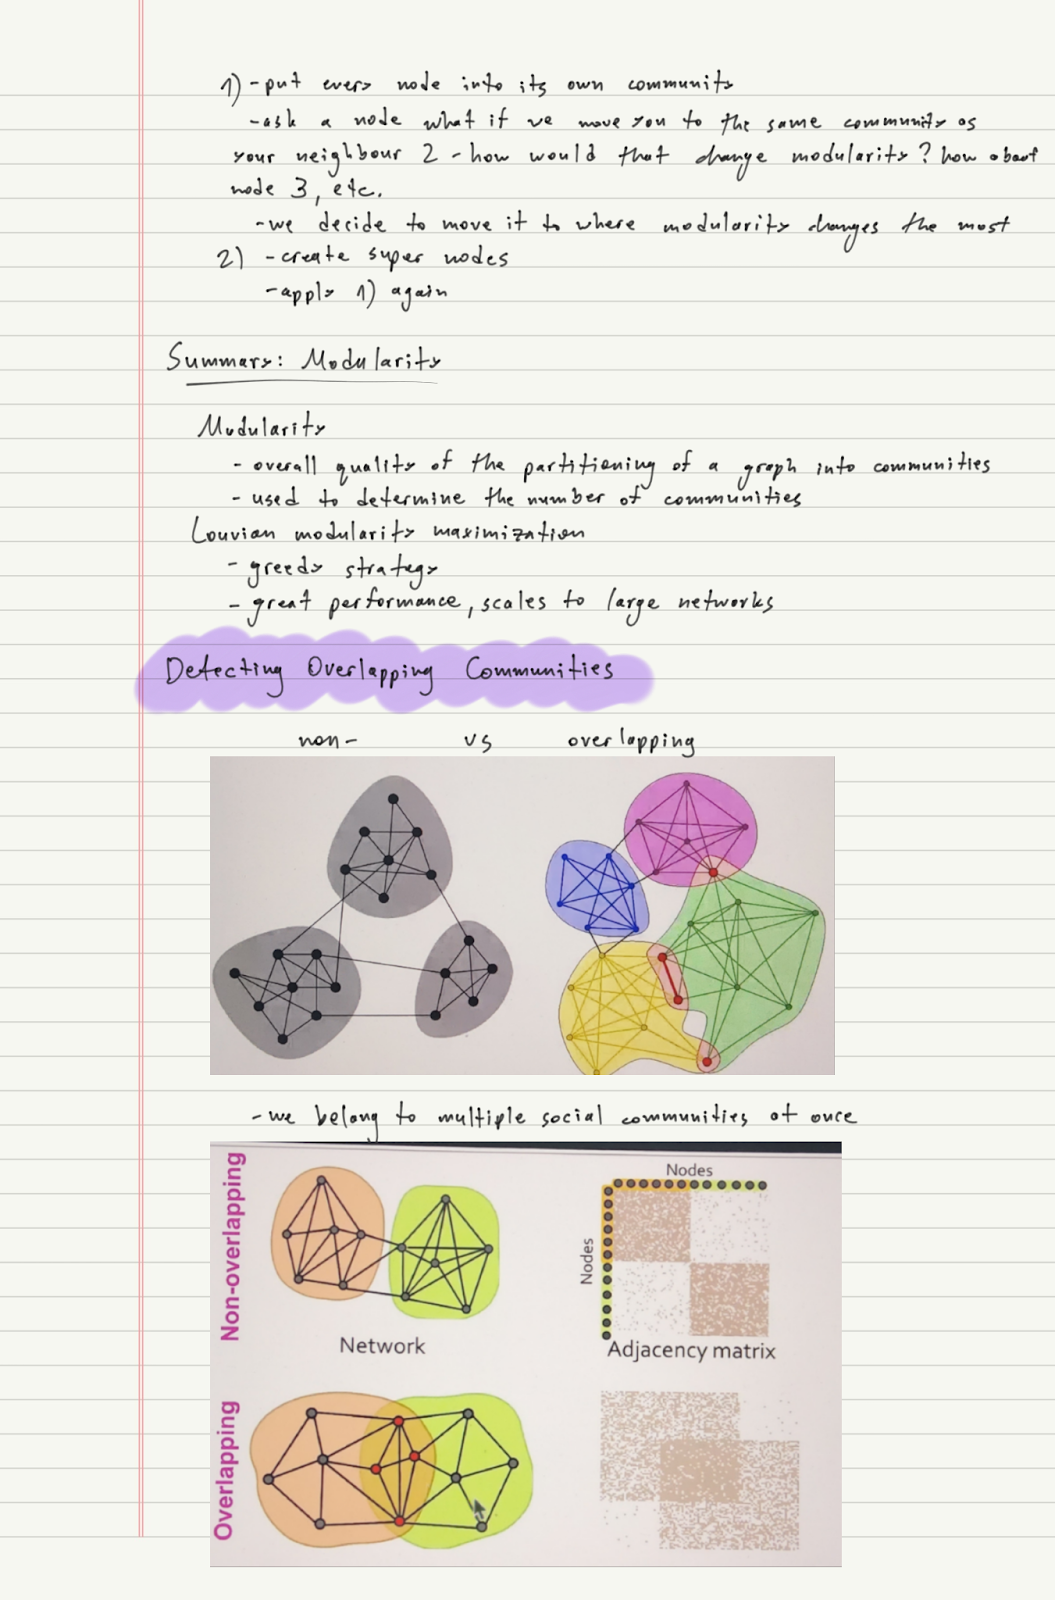 1) - put every node into its own community
- ask a node what if we move you to the same community as
your neighbour 2 - how would that change modularity? how about
node 3, etc.
- we decide to move it to where modularity changes the most
2) - create super nodes
- apply 1) again
Summary: Modularity
Modularity
- overall quality of the partitioning of a graph into communities
- used to determine the number of communities
Louvian modularity maximization
- greedy strategy
- great performance, scales to large networks
Detecting Overlapping Communities
non- vs overlapping
- we belong to multiple social communities at once
Non-overlapping
Nodes
Nodes
Network
Adjacency matrix
Overlapping